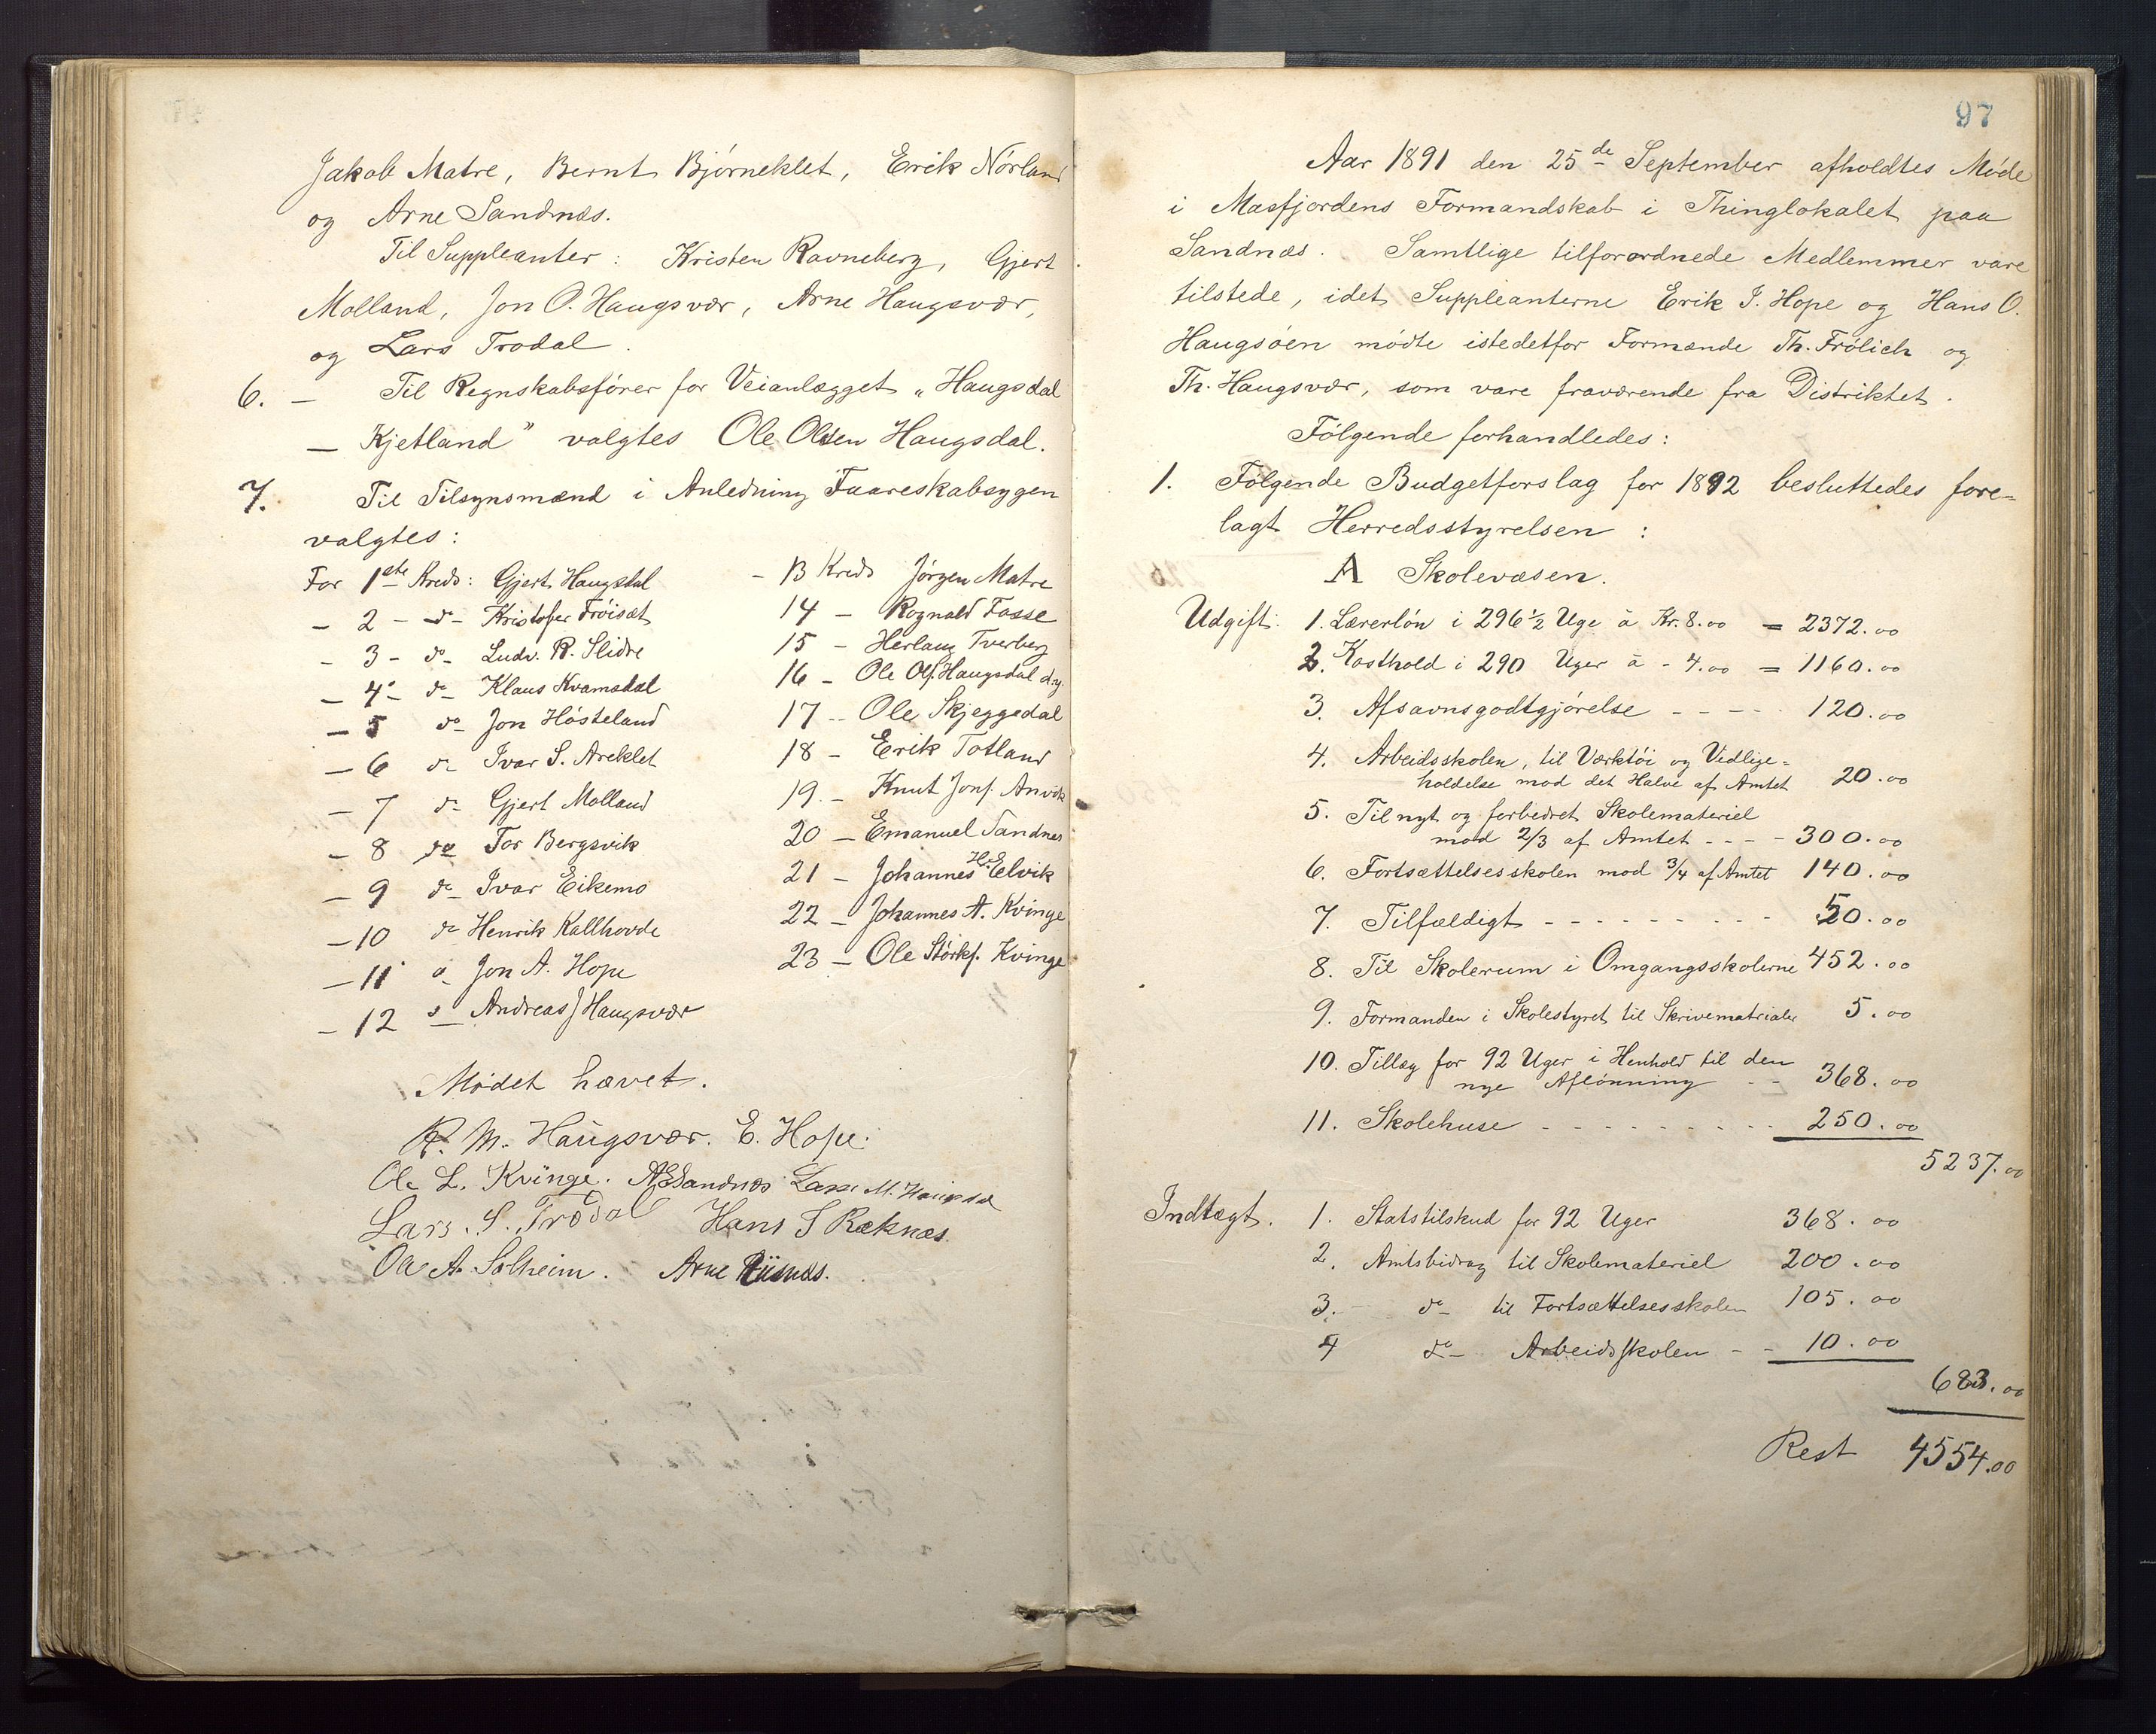 Jakob Matre, Bernt Bjørneklet, Erik Nørland
og Arne Sandnæs.
Til Suppleanter: Kristen Ravneberg, Gjert
Molland, Jon O. Haugsvær, Arne Haugsvær,
og Lars Trodal.
6. — Til Regnskabsfører for Veianlægget „Haugsdal
— Kjetland" valgtes Ole Olsen Haugsdal.
7. Til Tilsynsmænd i Anledning Faareskabsygen
valgtes:
For 1ste Kreds: Gjert Haugsdal
— 2 — do — Kristofer Frøiset
— 3 — do — Ludv. R. Slidre
— 4 — do — Klaus Kvamsdal
— 5 do Jon Høsteland
— 6 do Ivar S. Areklet
— 7 do Gjert Molland
— 8 do Tor Bergsvik
— 9 do Ivar Eikemo
— 10 do Henrik Kallhovde
— 11 do Jon A. Hope
— 12 do Andreas J Haugsvær
— 13 Kreds Jørgen Matre
14 — Rognald Fosse
15 — Herlaug Tverberg
16 — Ole Olf. Haugsdal d.y.
17 — Ole Skjeggedal
18 — Erik Totland
19 — Knut Jonf. Anvik
20 — Emanuel Sandnes
21 — Johannes H. Elvik
22 — Johannes A. Kvinge
23 — Ole Størkf. Kvinge
Mødet hævet.
R. M. Haugsvær. E. Hope.
Ole L. Kvinge. A Sandnæs Lars M. Haugsdal
Lars. S. Trodal Hans S Ræknæs.
Ole A. Solheim. Arne Riisnæs.
97
Aar 1891 den 25de September afholdtes Møde
i Masfjordens Formandskab i Thinglokalet paa
Sandnæs. Samtlige tilforordnede Medlemmer vare
tilstede, idet Suppleanterne Erik J. Hope og Hans O.
Haugsøen mødte istedetfor Formænde Th. Frølich og
Th. Haugsvær, som vare fraværende fra Distriktet.
Følgende forhandledes:
1. Følgende Budgetforslag for 1892 besluttedes fore-
lagt Herredsstyrelsen:
A Skolevæsen.
Udgift: 1. Lærerløn i 296 1/2 Uge à Kr. 8.00 = 2372.00
2. Kosthold i 290 Uger à - 4.00 = 1160.00
3. Afsavnsgodtgjørelse - - - - 120.00
4. Arbeidsskolen, til Værktøi og Vedlige-
holdelse mod det Halve af Amtet 20.00
5. Til nyt og forbedret Skolemateriel
mod 2/3 af Amtet - - - 300.00
6. Fortsættelsesskolen mod 3/4 af Amtet 140.00
7. Tilfældigt - - - - - - - - 50.00
8. Til Skolerum i Omgangsskolerne 452.00
9. Formanden i Skolestyret til Skrivematrialer 5.00
10. Tillæg for 92 Uger i Henhold til den
nye Aflønning - - 368.00
11. Skolehuse - - - - - - - - - 250.00
5237.00
Indtægt. 1. Statstilskud for 92 Uger 368.00
2. Amtsbidrag til Skolemateriel 200.00
3. do til Fortsættelsesskolen 105.00
4 do Arbeidsskolen - - 10.00
683.00
Rest 4554.00